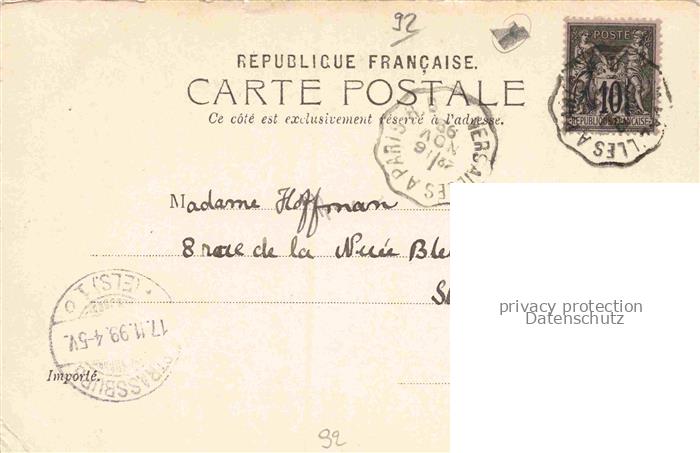 92
RÉPUBLIQUE FRANÇAISE.
CARTE POSTALE
Ce côté est exclusivement réservé à l'adresse.
POSTE
10
REPUBLIQUE FRANÇAISE
VERSAILLES A PARIS
NOV
99
Madame Hoffman
8 rue de la Nuée Ble
S
STRASSBURG (ELS) 1
17.11.99.4-5V.
Importé.
92
privacy protection
Datenschutz